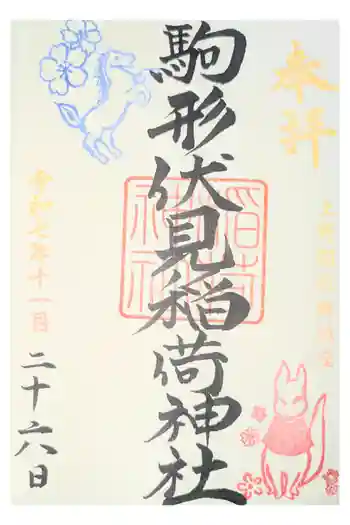 奉拝
駒形伏見稲荷神社
令和七年十一月
二十六日